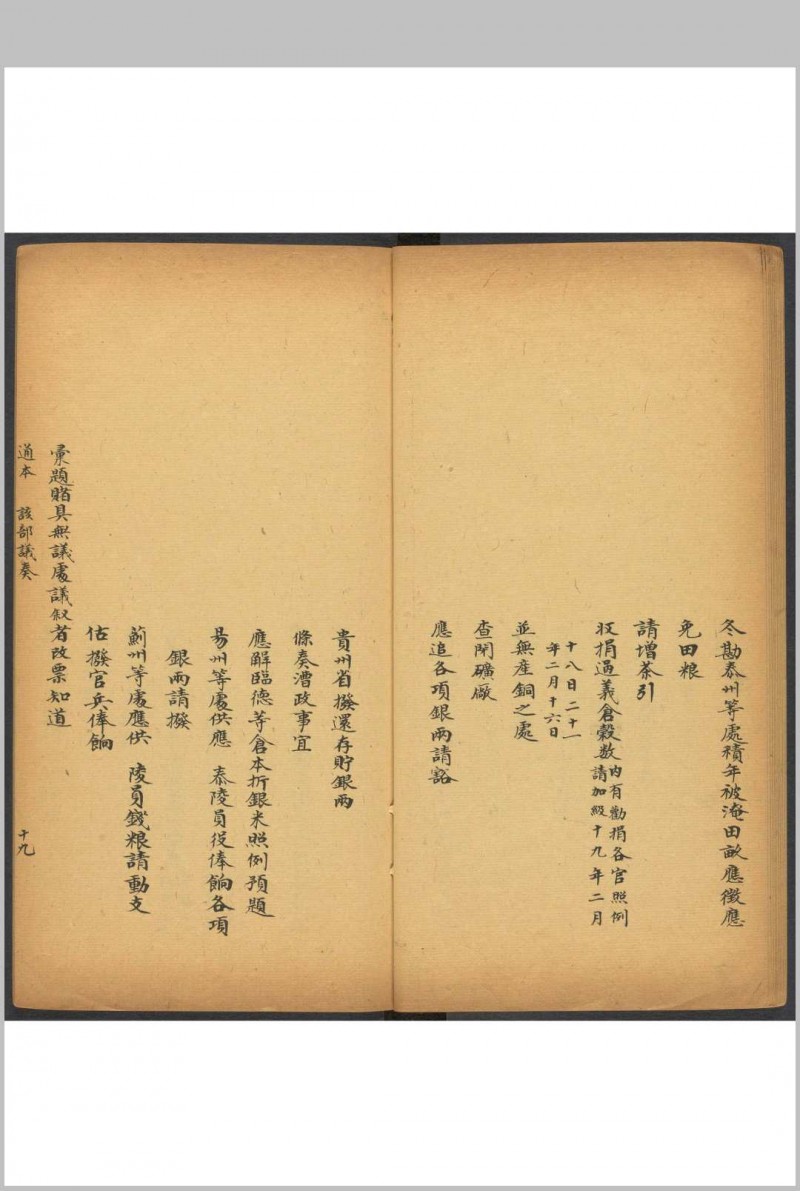 冬勘泰州等處積年被淹田畝應徵應
免田粮
請增茶引
收捐過義倉穀数内有勸捐各官照例
請加級十九年二月
十八日二十一
年二月十六日
並無產銅之處
查閉礦廠
應追各項銀兩請豁
貴州省撥還存貯銀兩
條奏漕政事宜
應解臨德等倉本折銀米照例預題
易州等處供應　泰陵員役俸餉各項
銀兩請撥
薊州等處應供　陵員錢粮請動支
估撥官兵俸餉
彙題賭具無議處議叙者改票知道
通本　該部議奏　十九